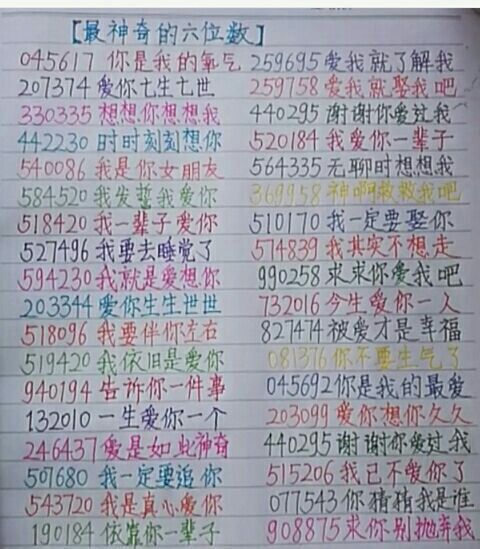 【最神奇的六位数】
045617 你是我的氧气
207374 爱你七生七世
330335 想想你想想我
442230 时时刻刻想你
540086 我是你女朋友
584520 我发誓我爱你
518420 我一辈子爱你
527496 我要去睡觉了
594230 我就是爱想你
203344 爱你生生世世
518096 我要伴你左右
519420 我依旧是爱你
940194 告诉你一件事
132010 一生爱你一个
246437 爱是如此神奇
507680 我一定要追你
543720 我是真心爱你
190184 依靠你一辈子
259695 爱我就了解我
259758 爱我就娶我吧
440295 谢谢你爱过我
520184 我爱你一辈子
564335 无聊时想想我
369958 神啊救救我吧
510170 我一定要娶你
574839 我其实不想走
990258 求求你爱我吧
732016 今生爱你一人
827474 被爱才是幸福
081376 你不要生气了
045692 你是我的最爱
203099 爱你想你久久
440295 谢谢你爱过我
515206 我已不爱你了
077543 你猜猜我是谁
908875 求你别抛弃我